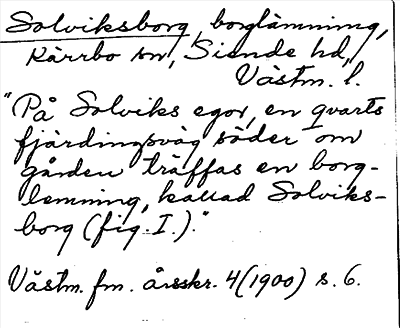 Solviksborg, borglämning,
Kärrbo sn, Siende hd,
Västm. l.
"På Solviks egor, en qvarts
fjärdingsväg söder om
gården träffas en borg-
lemning, kallad Solviks-
borg (fig. I.)."
Västm. fm. årsskr. 4 (1900) s. 6.